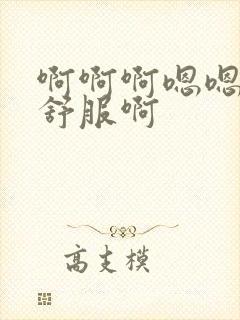 啊啊啊嗯嗯
舒服啊
高支模